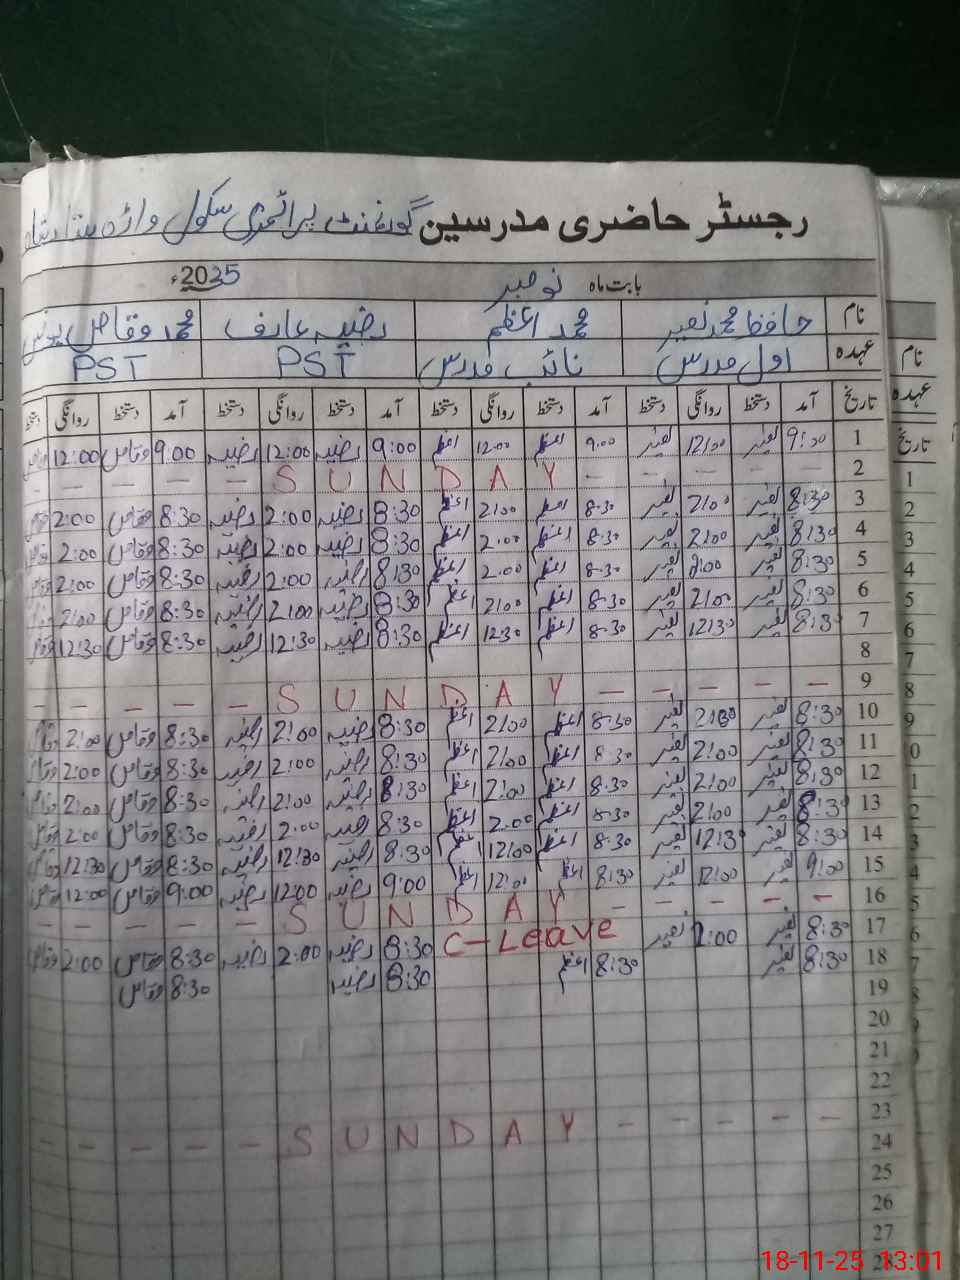 رجسٹر حاضری مدرسین گورنمنٹ پرائمری سکول واڑہ
بابت ماہ نومبر 2025ء
نام حافظ محمد نصیر محمد اعظم رضیہ عارف محمد وقاص یونس
عہدہ اول مدرس نائب مدرس PST PST
تاریخ آمد دستخط روانگی دستخط آمد دستخط روانگی دستخط آمد دستخط روانگی دستخط آمد دستخط روانگی دستخط
1 9:00 نصیر 12:00 نصیر 9:00 اعظم 12:00 اعظم 9:00 رضیہ 12:00 رضیہ 9:00 وقاص 12:00 وقاص
2 SUNDAY
3 8:30 نصیر 2:00 نصیر 8:30 اعظم 2:00 اعظم 8:30 رضیہ 2:00 رضیہ 8:30 وقاص 2:00 وقاص
4 8:30 نصیر 2:00 نصیر 8:30 اعظم 2:00 اعظم 8:30 رضیہ 2:00 رضیہ 8:30 وقاص 2:00 وقاص
5 8:30 نصیر 2:00 نصیر 8:30 اعظم 2:00 اعظم 8:30 رضیہ 2:00 رضیہ 8:30 وقاص 2:00 وقاص
6 8:30 نصیر 2:00 نصیر 8:30 اعظم 2:00 اعظم 8:30 رضیہ 2:00 رضیہ 8:30 وقاص 2:00 وقاص
7 8:30 نصیر 12:30 نصیر 8:30 اعظم 12:30 اعظم 8:30 رضیہ 12:30 رضیہ 8:30 وقاص 12:30 وقاص
8
9 SUNDAY
10 8:30 نصیر 2:00 نصیر 8:30 اعظم 2:00 اعظم 8:30 رضیہ 2:00 رضیہ 8:30 وقاص 2:00 وقاص
11 8:30 نصیر 2:00 نصیر 8:30 اعظم 2:00 اعظم 8:30 رضیہ 2:00 رضیہ 8:30 وقاص 2:00 وقاص
12 8:30 نصیر 2:00 نصیر 8:30 اعظم 2:00 اعظم 8:30 رضیہ 2:00 رضیہ 8:30 وقاص 2:00 وقاص
13 8:30 نصیر 2:00 نصیر 8:30 اعظم 2:00 اعظم 8:30 رضیہ 2:00 رضیہ 8:30 وقاص 2:00 وقاص
14 8:30 نصیر 12:30 نصیر 8:30 اعظم 12:00 اعظم 8:30 رضیہ 12:30 رضیہ 8:30 وقاص 12:30 وقاص
15 9:00 نصیر 12:00 نصیر 8:30 اعظم 12:00 اعظم 9:00 رضیہ 12:00 رضیہ 9:00 وقاص 12:00 وقاص
16 SUNDAY
17 8:30 نصیر 2:00 نصیر C-Leave 8:30 رضیہ 2:00 رضیہ 8:30 وقاص 2:00 وقاص
18 8:30 نصیر 8:30 اعظم 8:30 رضیہ 8:30 وقاص
19
20
21
22
23 SUNDAY
24
25
26
27
28
نام
عہدہ
تاریخ
1
2
3
4
5
6
7
8
9
0
1
2
3
4
5
6
7
8
18-11-25 13:01